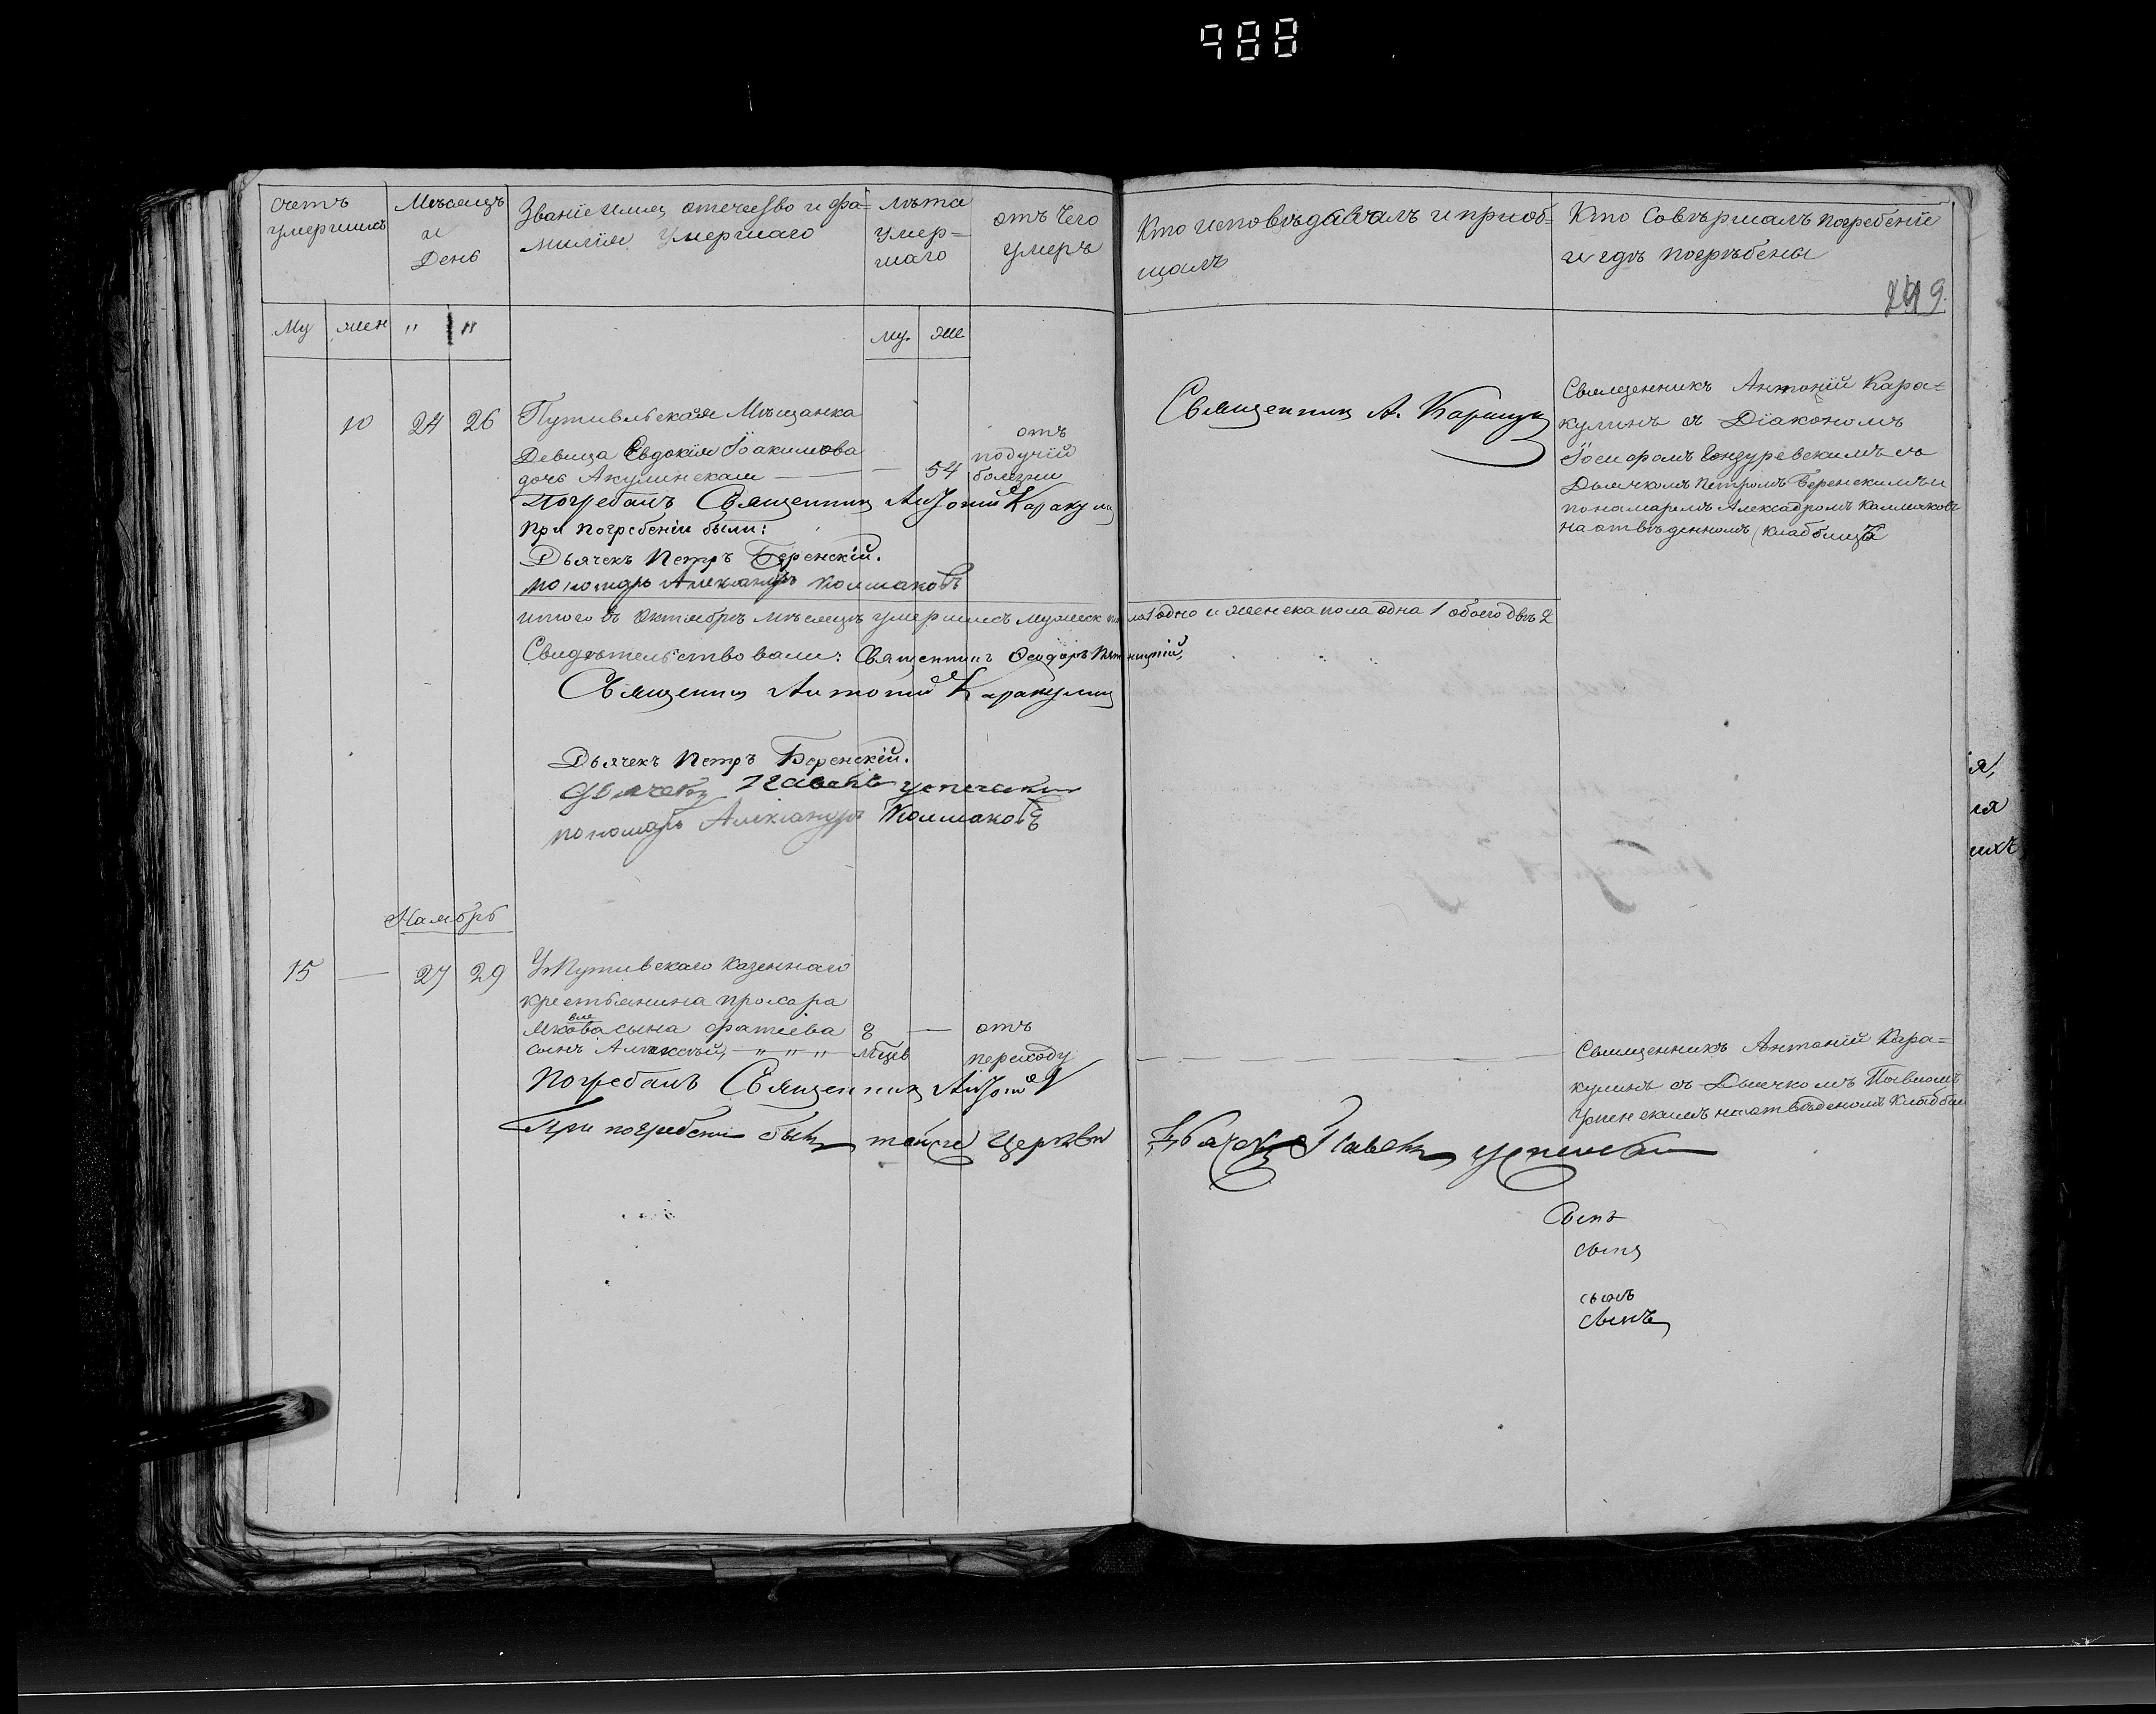 988
Счетъ
умершихъ
Мѣсецъ
и
День
Званїе имя отечество и фа=
милїя умершаго
лѣта
умер=
шаго
отъ Чего
умеръ
Кто исповѣдавалъ и приоб=
щалъ
Кто Совѣршалъ погребенїе
и гдѣ погрѣбены
Му жен " "
му. же
10 24 26 Путивльская Мѣщанка
Девица Евдокїя Іоакимова
дочь Акулинская — — 54
отъ
подучїй
болезни
Погребалъ Священникъ Антоній Каракулинъ
При погребеніи были:
Дьячекъ Петръ Беренскій.
пономарь Александръ Колмаковъ
Священникъ А. Каракулинъ
Священникъ Антонїй Кара=
кулинъ съ Дїакономъ
съ
Дьячкомъ Петромъ Беренскимъ и
понамаремъ Алексадромъ Калмаковъ
на отвѣденномъ кладбищѣ
итого въ Октябрѣ мѣсецѣ умершихъ мужеск пола 1 одно и женска пола одна 1 обоего двѣ 2
Свидѣтельствовали: Священникъ Ѳеодоръ
Священникъ Антоній Каракулинъ
Дьячекъ Петръ Беренскій.
Дьячекъ Павелъ Успенскій
пономарь Александръ Колмаковъ
Наябрь
15 — 27 29 У Путивскаго Казеннаго
крестьянина прохара
вле
Якова сына фатеева 8 — отъ
сынъ Алексѣй, — " " " мѣцев
переходу
Погребалъ Священникъ Антоній К
При погребеніи былъ тойже Церкви
Дьячекъ Павелъ Успенскій
Священникъ Антаній Кара=
кулинъ съ Дьячкомъ Павломъ
Успенскимъ на отвѣденомъ Кладби
Сынъ
сынъ
сынъ
сынъ
я,
ія
ихъ